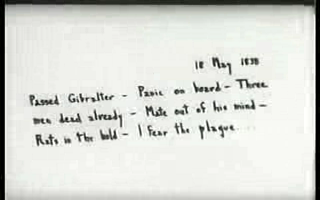 18 May 1838
Passed Gibralter - Panic on board - Three
men dead already - Mate out of his mind -
Rats in the hold - I fear the plague ...